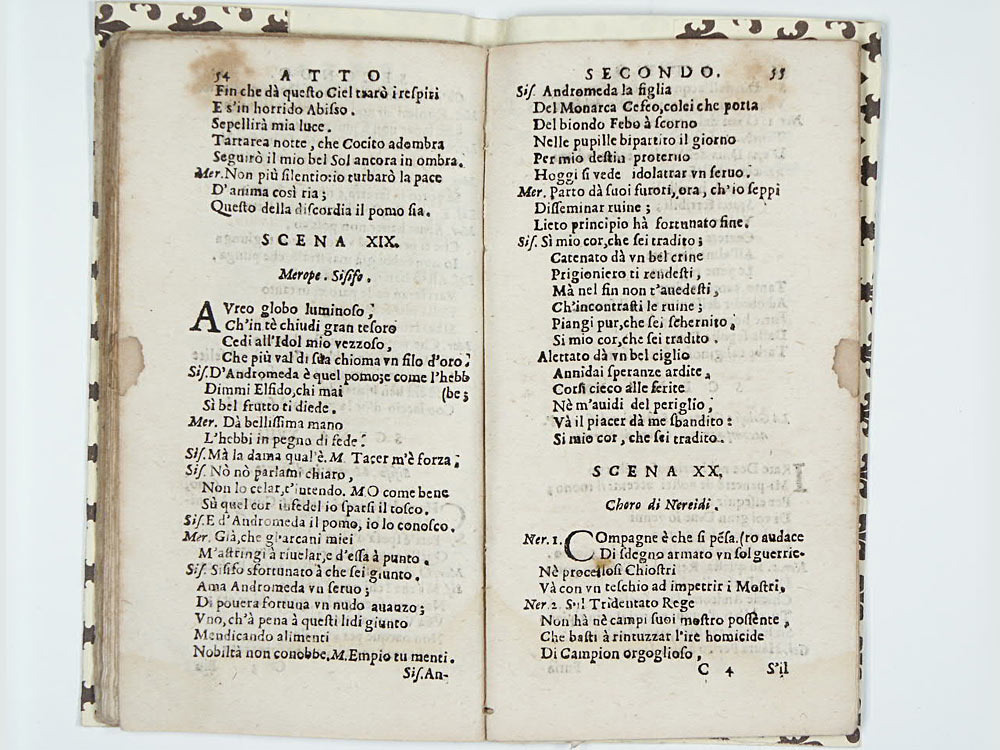 54 ATTO
Fin che dà questo Ciel trarò i respiri
E s'in horrido Abisso.
Sepellirà mia luce.
Tartarea notte, che Cocito adombra
Seguirò il mio bel Sol ancora in ombra.
Mer. Non più silentio: io turbarò la pace
D'anima così ria;
Questo della discordia il pomo sia.
SCENA XIX.
Merope. Sisifo.
AVreo globo luminoso,
Ch'in tè chiudi gran tesoro
Cedi all'Idol mio vezzoso,
Che più val di sua chioma vn filo d'oro.
Sis. D'Andromeda è quel pomo; e come l'hebb
Dimmi Elfido, chi mai (be;
Sì bel frutto ti diede.
Mer. Dà bellissima mano
L'hebbi in pegno di fede.
Sis. Mà la dama qual'è. M. Tacer m'è forza;
Sis. Nò nò parlami chiaro,
Non lo celar, t'intendo. M. O come bene
Sù quel cor infedel io sparsi il tosco.
Sis. E d'Andromeda il pomo, io lo conosco.
Mer. Già, che gl'arcani miei
M'astringi à riuelar, e d'essa à punto.
Sis. Sisifo sfortunato à che sei giunto.
Ama Andromeda vn seruo;
Di pouera fortuna vn nudo auanzo;
Vno, ch'à pena à questi lidi giunto
Mendicando alimenti
Nobiltà non conobbe. M. Empio tu menti.
Sis. An-
SECONDO. 55
Sis. Andromeda la figlia
Del Monarca Cefeo, colei che porta
Del biondo Febo à scorno
Nelle pupille bipartito il giorno
Per mio destin proteruo
Hoggi si vede idolatrar vn seruo.
Mer. Parto dà suoi furori, ora, ch'io seppi
Disseminar ruine;
Lieto principio hà fortunato fine.
Sis. Sì mio cor, che sei tradito;
Catenato dà vn bel crine
Prigioniero ti rendesti,
Mà nel fin non t'auedesti,
Ch'incontrasti le ruine;
Piangi pur, che sei schernito,
Si mio cor, che sei tradito.
Alettato dà vn bel ciglio
Annidai speranze ardite,
Corsi cieco alle ferite
Nè m'auidi del periglio,
Và il piacer dà me sbandito:
Si mio cor, che sei tradito.
SCENA XX.
Choro di Nereidi.
Ner. 1. COmpagne è che si pẽsa. (ro audace
Di sdegno armato vn sol guerrie-
Nè procellosi Chiostri
Và con vn teschio ad impetrir i Mostri.
Ner. 2. Sul Tridentato Rege
Non hà nè campi suoi mostro possente,
Che basti à rintuzzar l'ire homicide
Di Campion orgoglioso,
C 4 S'il